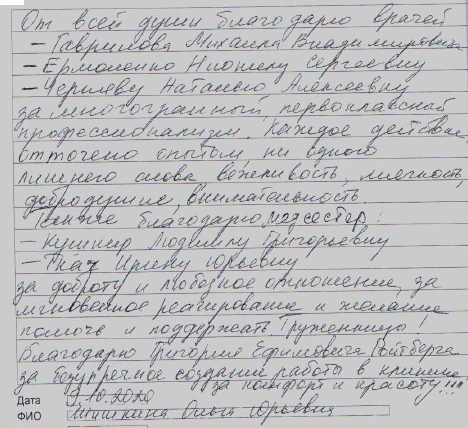 От всей души благодарю врачей
– Гаврилова Михаила Владимировича
– Ермоленко Нионилу Сергеевну
– Черняеву Наталию Алексеевну
за многогранный, первоклассный
профессионализм. Каждое действие
отточено опытом, ни одного
лишнего слова вежливость, мягкость,
добродушие, внимательность.
Также благодарю медсестер:
– Кушнир Людмилу Григорьевну
– Ткач Ирину Юрьевну
за доброту и любовное отношение, за
мгновенное реагирование и желание
помочь и поддержать. Труженницы!
Благодарю Григория Ефимовича Ройтберга
за безупречное создание работы в клинике
за комфорт и красоту!!!
Дата 9.10.2020
ФИО Ольга Юрьевна